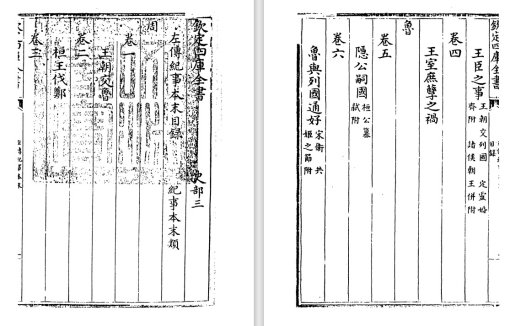 欽定四庫全書 史部三
左傳紀事本末目錄 紀事本末類
周
卷一
王朝交魯
卷二
桓王伐鄭
卷三
欽定四庫全書
目錄
王臣之事 王朝交列國 定靈婚
齊附 諸侯朝王併附
卷四
王室庶孽之禍
魯
卷五
隱公嗣國 桓公篡
弒附
卷六
魯與列國通好 宋衛共
姬之節附